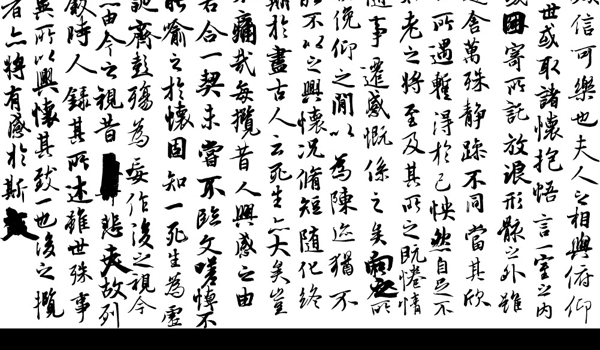 信可樂也夫人之相與俯仰
世或取諸懷抱悟言一室之內
或因寄所託放浪形骸之外雖
舍萬殊靜躁不同當其欣
所遇暫得於己怏然自足不
老之將至及其所之既惓情
隨事遷感慨係之矣向之所
俛仰之間以為陳迹猶不
能不以之興懷況脩短隨化終
期於盡古人云死生亦大矣豈
痛哉每攬昔人興感之由
若合一契未嘗不臨文嗟悼不
能喻之於懷固知一死生為虛
誕齊彭殤為妄作後之視今
由今之視昔悲夫故列
敘時人錄其所述雖世殊事
異所以興懷其致一也後之攬
者亦將有感於斯文